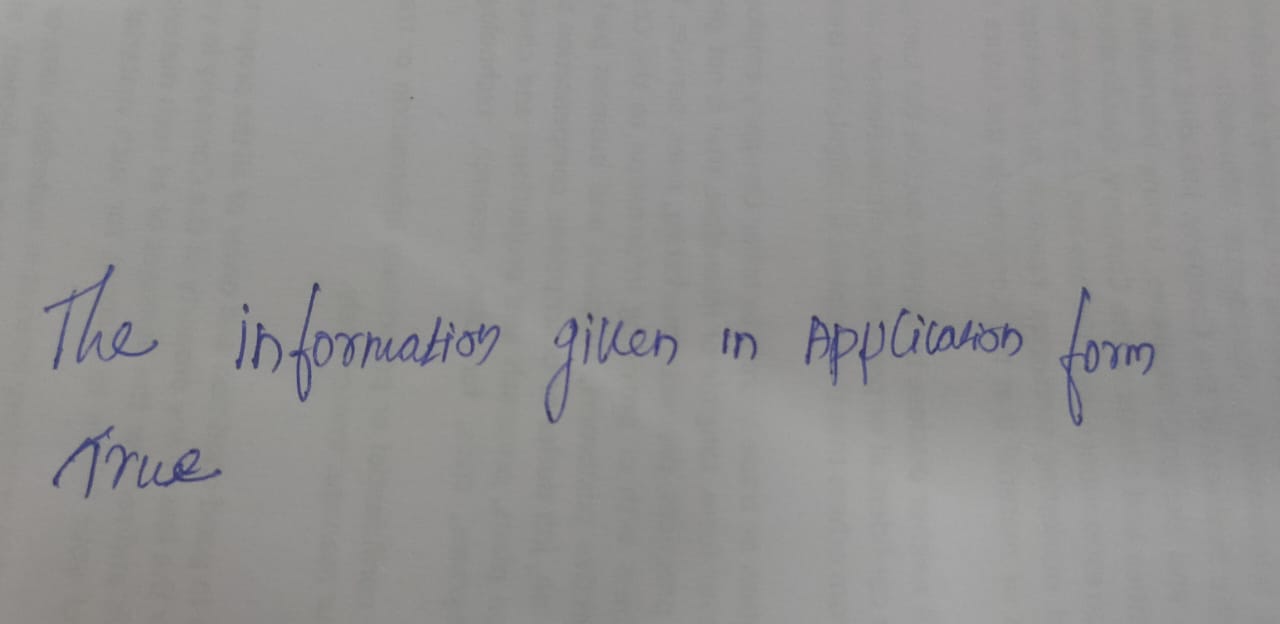 The information given in Application form
True